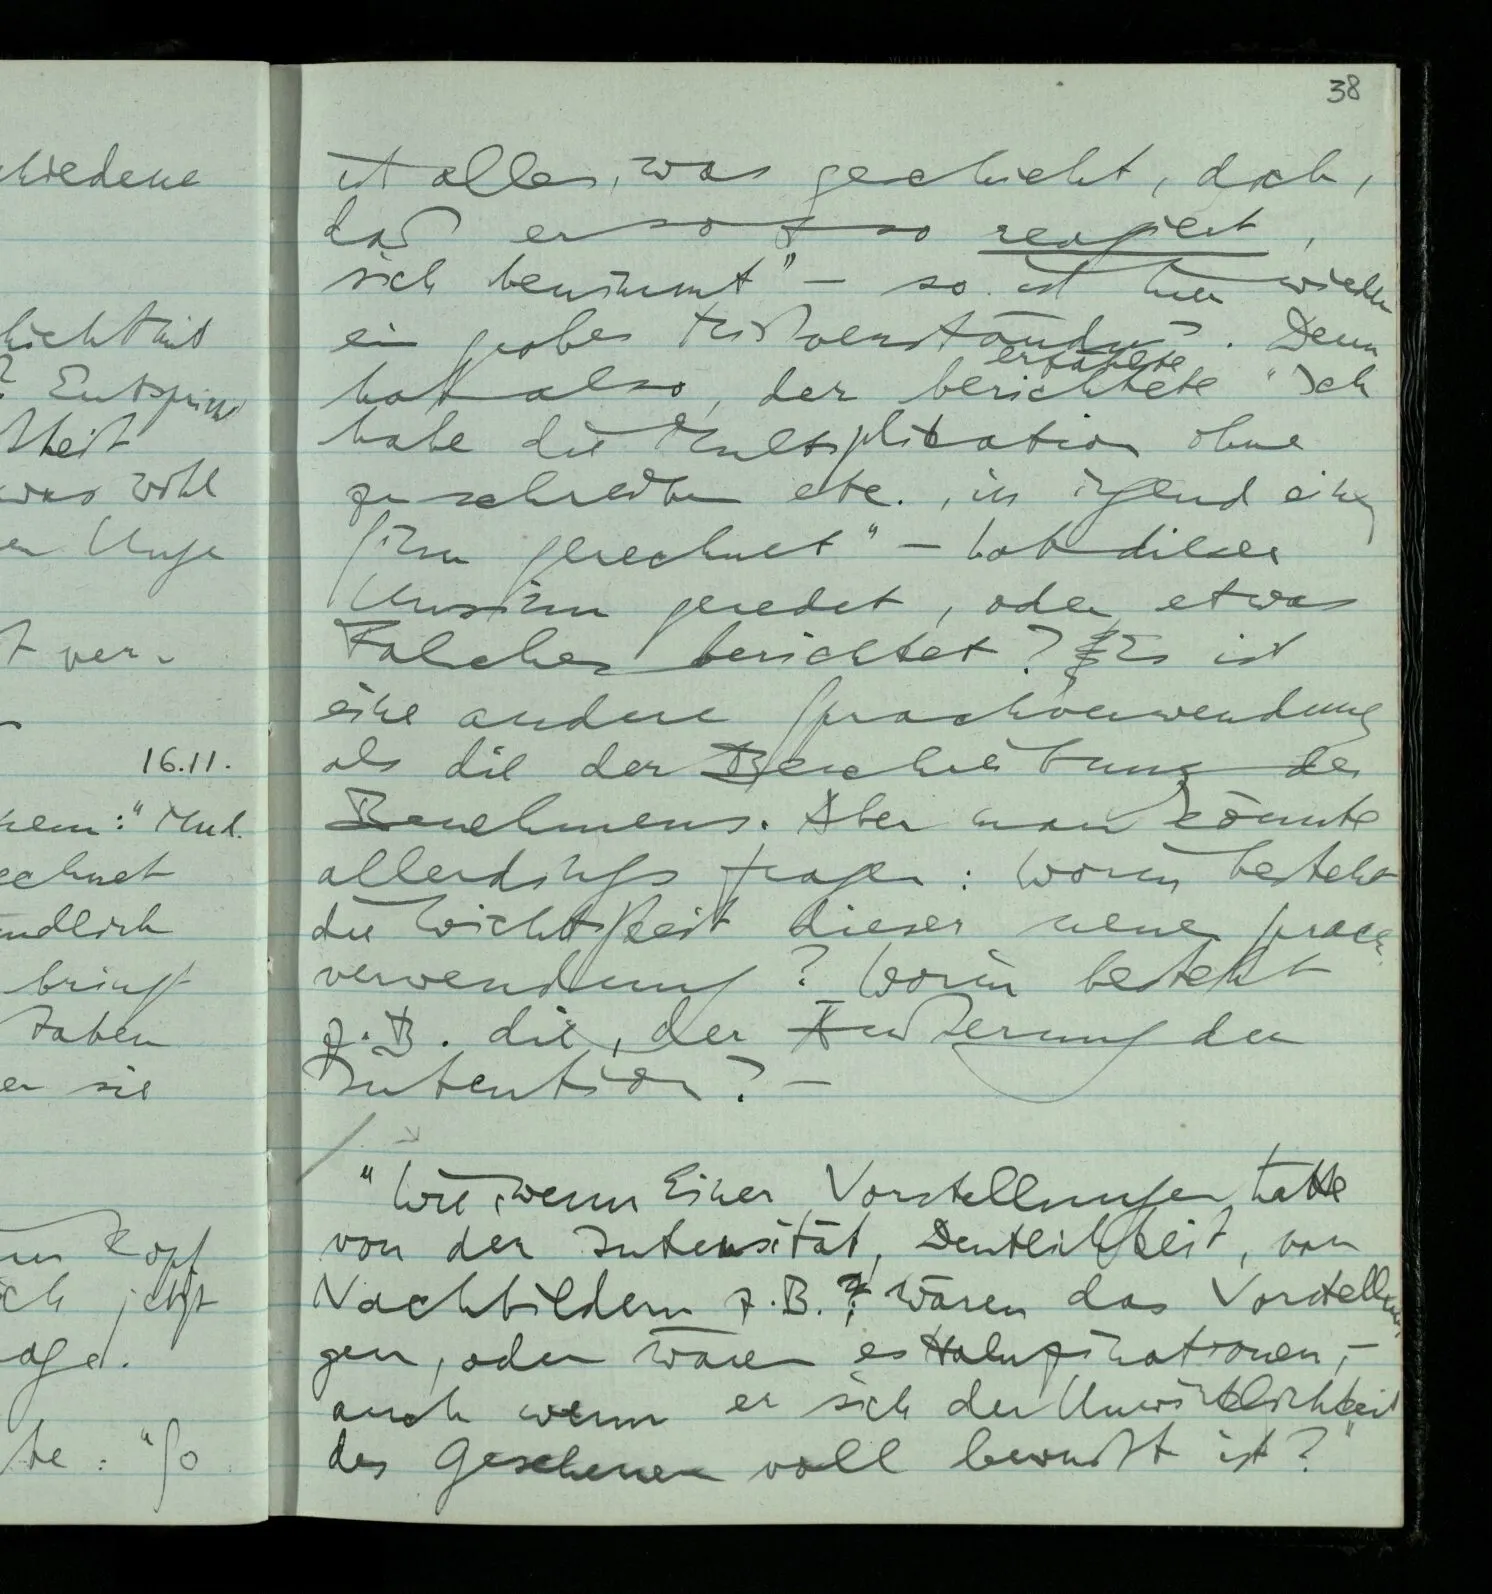 38
chiedene
16.11.
ist alles, was geschieht, doch,
daß er so & so reagiert,
sich benimmt" – so ist hier wieder
ein grobes Mißverständnis. Denn
hat also, der berichtete erzählte "Ich
habe die Multiplikation ohne
zu schreiben etc., in irgend einem
Sinn gerechnet" – hat dieser
Unsinn geredet, oder etwas
Falsches berichtet? Es ist
eine andere Sprachverwendung
als die der Beschreibung des
Benehmens. Aber man könnte
allerdings fragen: Worin besteht
die Wichtigkeit dieser neuen Sprach-
verwendung? Worin besteht
z.B. die, der Äußerung der
Intention? –
"Wie, wenn Einer Vorstellungen hätte
von der Intensität, Deutlichkeit, von
Nachbildern z.B.; wären das Vorstellun-
gen, oder wären es Haluzinationen, –
auch wenn er sich der Unwirklichkeit
des Gesehenen voll bewußt ist?"